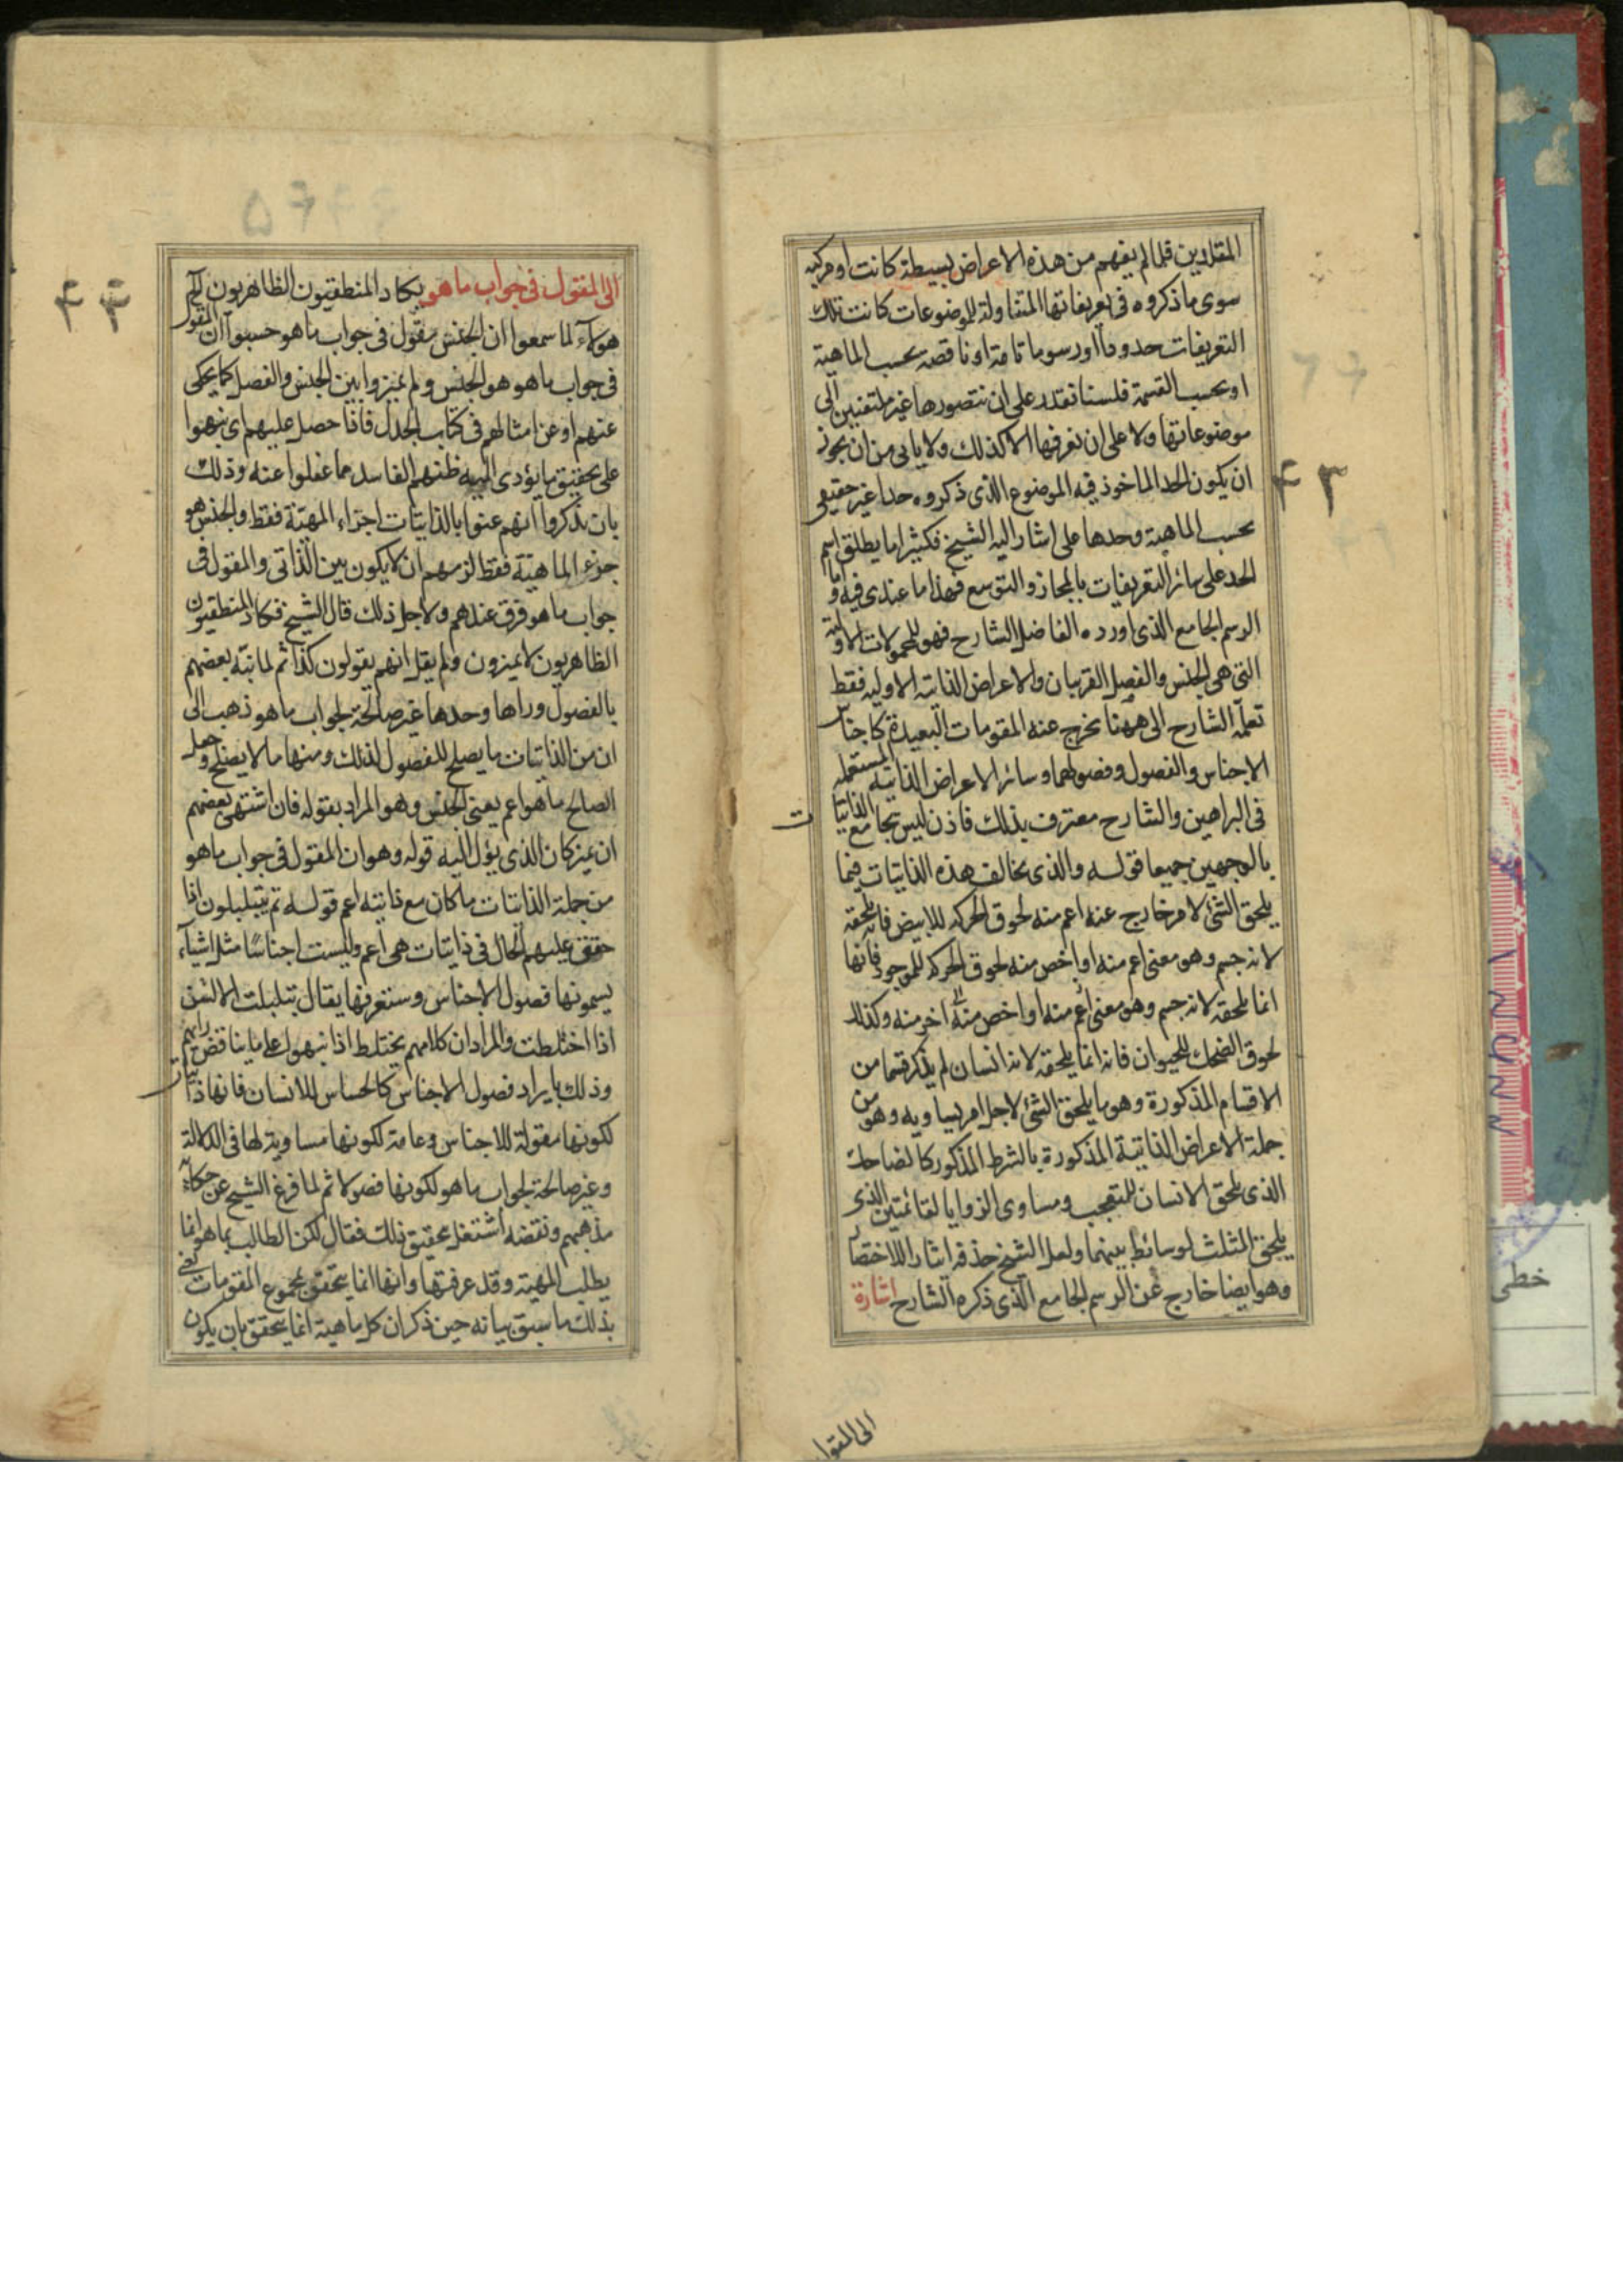 المقلدين قلما لم يفهم من هذه الاعراض بسيطة كانت او مركبه
سوى ما ذكروه فى تعريفاتها المتناولة للموضوعات كانت تلك
التعريفات حدودا او رسوما تامة او ناقصه بحسب الماهية
او بحسب القسمة فلسنا نقدر على ان نتصورها غير ملتفتين الى
موضوعاتها ولا على ان نعرفها الا كذلك ولا يابى من ان يجوز
ان يكون الحد الماخوذ فيه الموضوع الذى ذكروه حدا غير حقيقى
بحسب الماهية وحدها على اشار اليه الشيخ فكثيرا ما يطلق اسم
الحد على سائر التعريفات بالمجاز والتوسع فهذا ما عندى فيه واما
الرسم الجامع الذى اورده الفاضل الشارح فهو للمحمولات الاولية
التى هى الجنس والفصل القريبان والاعراض الذاتيه الاوليه فقط
الشارح الى ههنا يخرج عنه المقومات البعيدة كاجناس
الاجناس والفصول وفصولهما وسائر الاعراض الذاتيه المستعمله
فى البراهين والشارح معترف بذلك فاذن ليس بجامع الذاتيات
بالوجهين جميعا قوله والذى يخالف هذه الذاتيات فيما
يلحق الشئ لامر خارج عنه اعم منه لحوق الحركه للابيض فانه يلحقه
لانه جسم وهو معنى اعم منه او اخص منه لحوق الحركه للموجود فانها
انما يلحقه لانه جسم وهو معنى اعم منه او اخص منه اخر منه وكذلك
لحوق الضحك للحيوان فانه انما يلحقه لانه انسان لم يذكر قسما من
الاقسام المذكورة وهو ما يلحق الشئ لاجل امر يساويه وهو من
جملة الاعراض الذاتية المذكورة بالشرط المذكور كالضاحك
الذى يلحق الانسان للمتعجب ومساوى الزوايا لقائمتين الذى
يلحق المثلث لوسائط بينهما ولعل الشيخ حذفه ايثارا للاختصار
وهو ايضا خارج عن الرسم الجامع الذى ذكره الشارح اشارة
الى المقول
٤٣
الى المقول فى جواب ما هو يكاد المنطقيون الظاهريون
هؤلاء لما سمعوا ان الجنس مقول فى جواب ما هو حسبوا ان المقول
فى جواب ما هو هو الجنس ولم يميزوا بين الجنس والفصل كما يحكى
عنهم او عن امثالهم فى كتاب الجدل فاذا حصل عليهم اى نبهوا
على تحقيق ما يؤدى اليه ظنهم الفاسد مما غفلوا عنه وذلك
بان يذكروا انهم عنوا بالذاتيات اجزاء المهيّة فقط والجنس هو
جزء الماهية فقط لزمهم ان لا يكون بين الذاتى والمقول فى
جواب ما هو فرق عندهم ولاجل ذلك قال الشيخ فكاد المنطقيون
الظاهريون لا يميزون ولم يقل انهم يقولون كذا ثم لما نبّه بعضهم
بالفصول وراها وحدها غير صالحة لجواب ما هو ذهب الى
ان من الذاتيات ما يصلح للفصول لذلك ومنها ما لا يصلح وجعل
الصالح ما هو اعم يعنى الجنس وهو المراد بقوله فان اشتهى بعضهم
ان يميز كان الذى يؤل اليه قوله وهو ان المقول فى جواب ما هو
من جملة الذاتيات ما كان مع ذاتيته اعم قوله ثم يتبلبلون اذا
حقق عليهم الحال فى ذاتيات هى اعم وليست اجناسًا مثل اشياء
يسمونها فصول الاجناس وستعرفها يقال تبلبلت الالسن
اذا اختلطت والمراد ان كلامهم يختلط اذا نبهوا على ما يناقض رايهم
وذلك بايراد فصول الاجناس كالحساس للانسان فانها ذاتيات
لكونها مقولة للاجناس وعامة لكونها مساوية لها فى الدلالة
وغير صالحة لجواب ما هو لكونها فصولا ثم لما فرغ الشيخ عن حكاية
مذهبهم ونقضه اشتغل بتحقيق ذلك فقال لكن الطالب بما هو انما
يطلب المهيّة وقد عرفتها وانها انما يتحقق بمجموع المقومات يعنى
بذلك ما سبق بيانه حين ذكر ان كل ماهية انما يتحقق بان يكون
٤٤
خطى